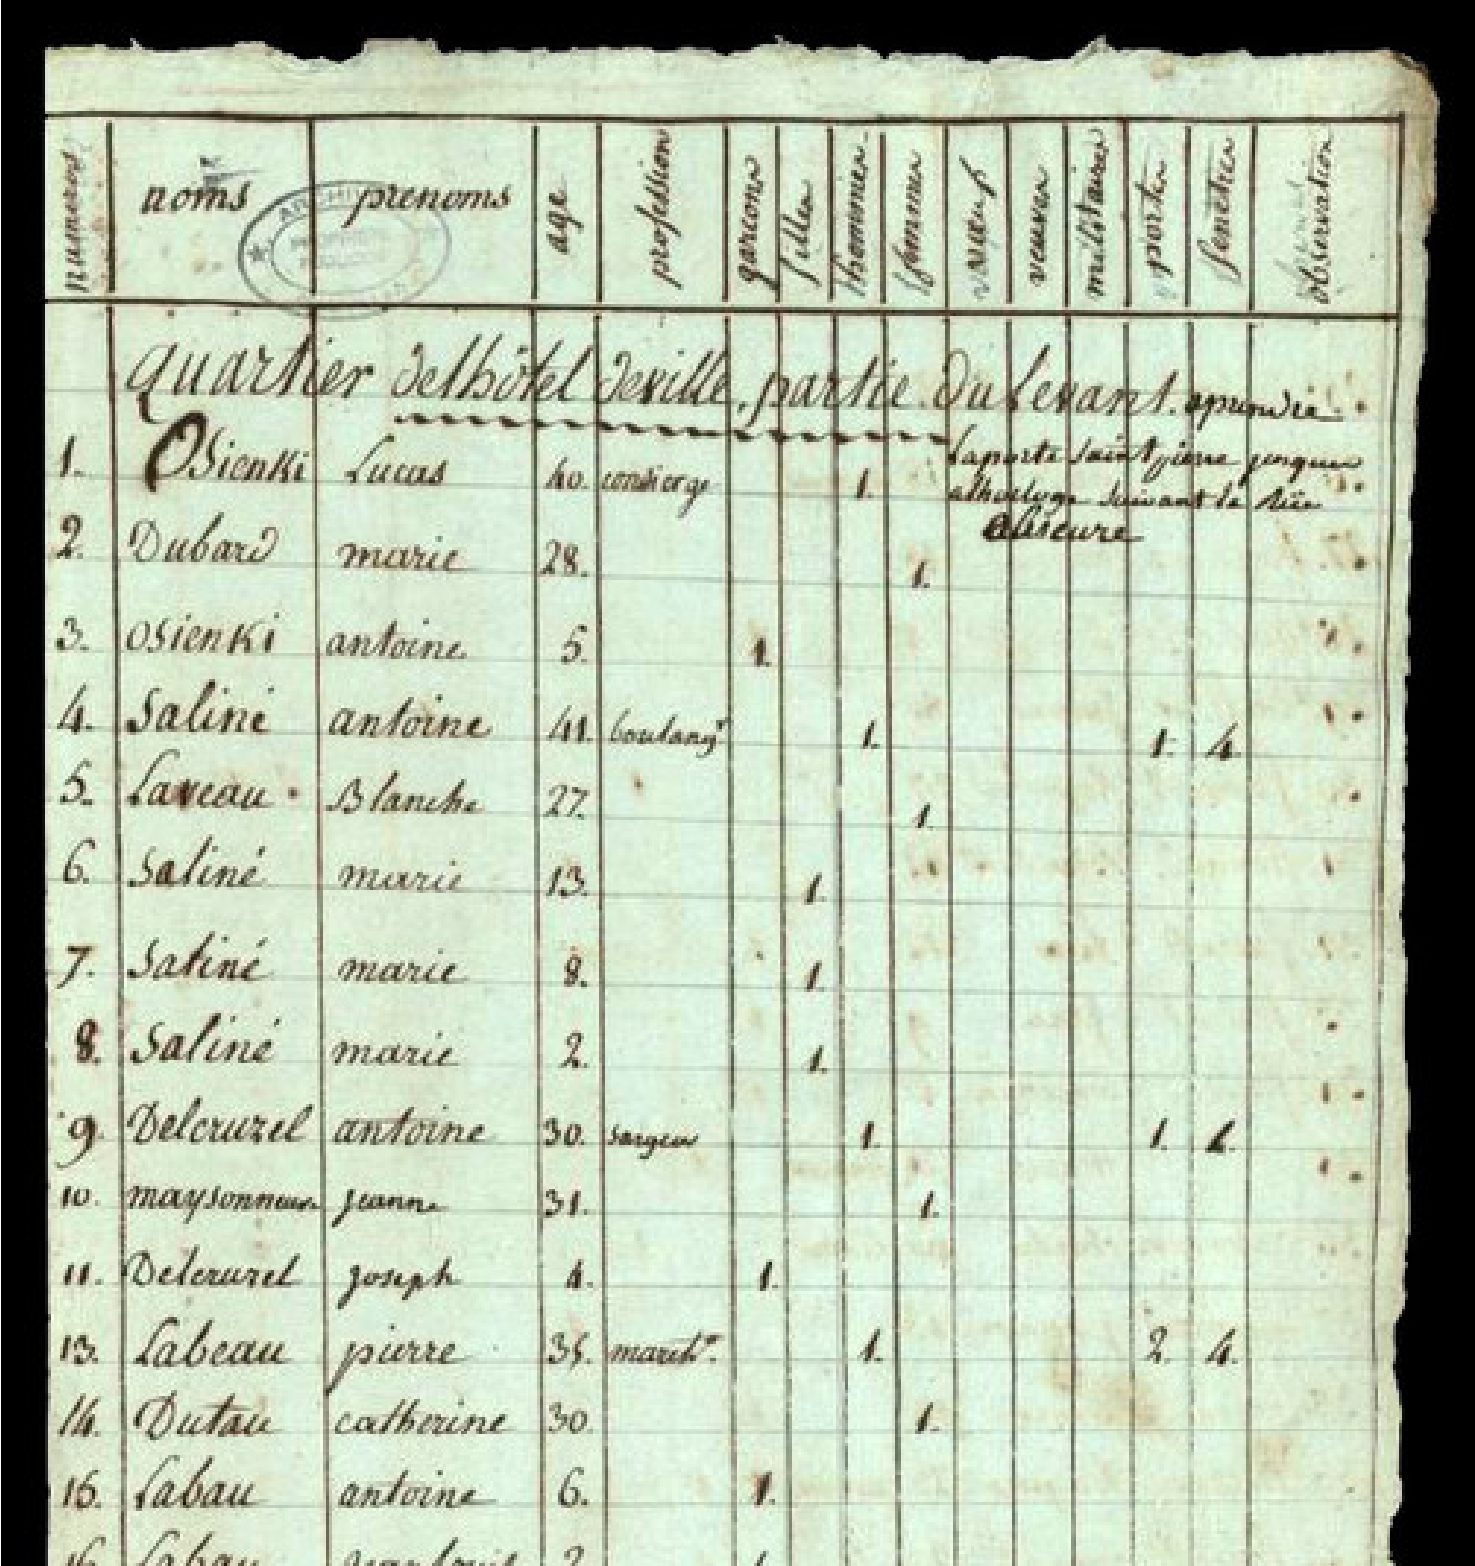 numeros noms prenoms age profession garçons filles hommes femmes veufs veuves militaires portes fenetres observation
quartier delhôtel deville, partie du levant. aprendre
laporte saint pierre jusques
1. Osienki Lucas 40. consierge 1.
alhorloge suivant la rüe
obscure
2. Dubard marie 28. 1.
3. Osienki antoine 5. 1.
4. Saliné antoine 41. boulangr 1. 1. 4.
5. Laveau Blanche 27. 1.
6. Saliné marie 13. 1.
7. Saliné marie 8. 1.
8. Saliné marie 2. 1.
9. Delcruzel antoine 30. sargeur 1. 1.
10. maysonneuve jeanne 31. 1.
11. Delcruzel joseph 4. 1.
13. Labeau pierre 35. march. 1. 2. 4.
14. Dutau catherine 30. 1.
15. Labau antoine 6. 1.
16. Labau jean louis 2. 1.